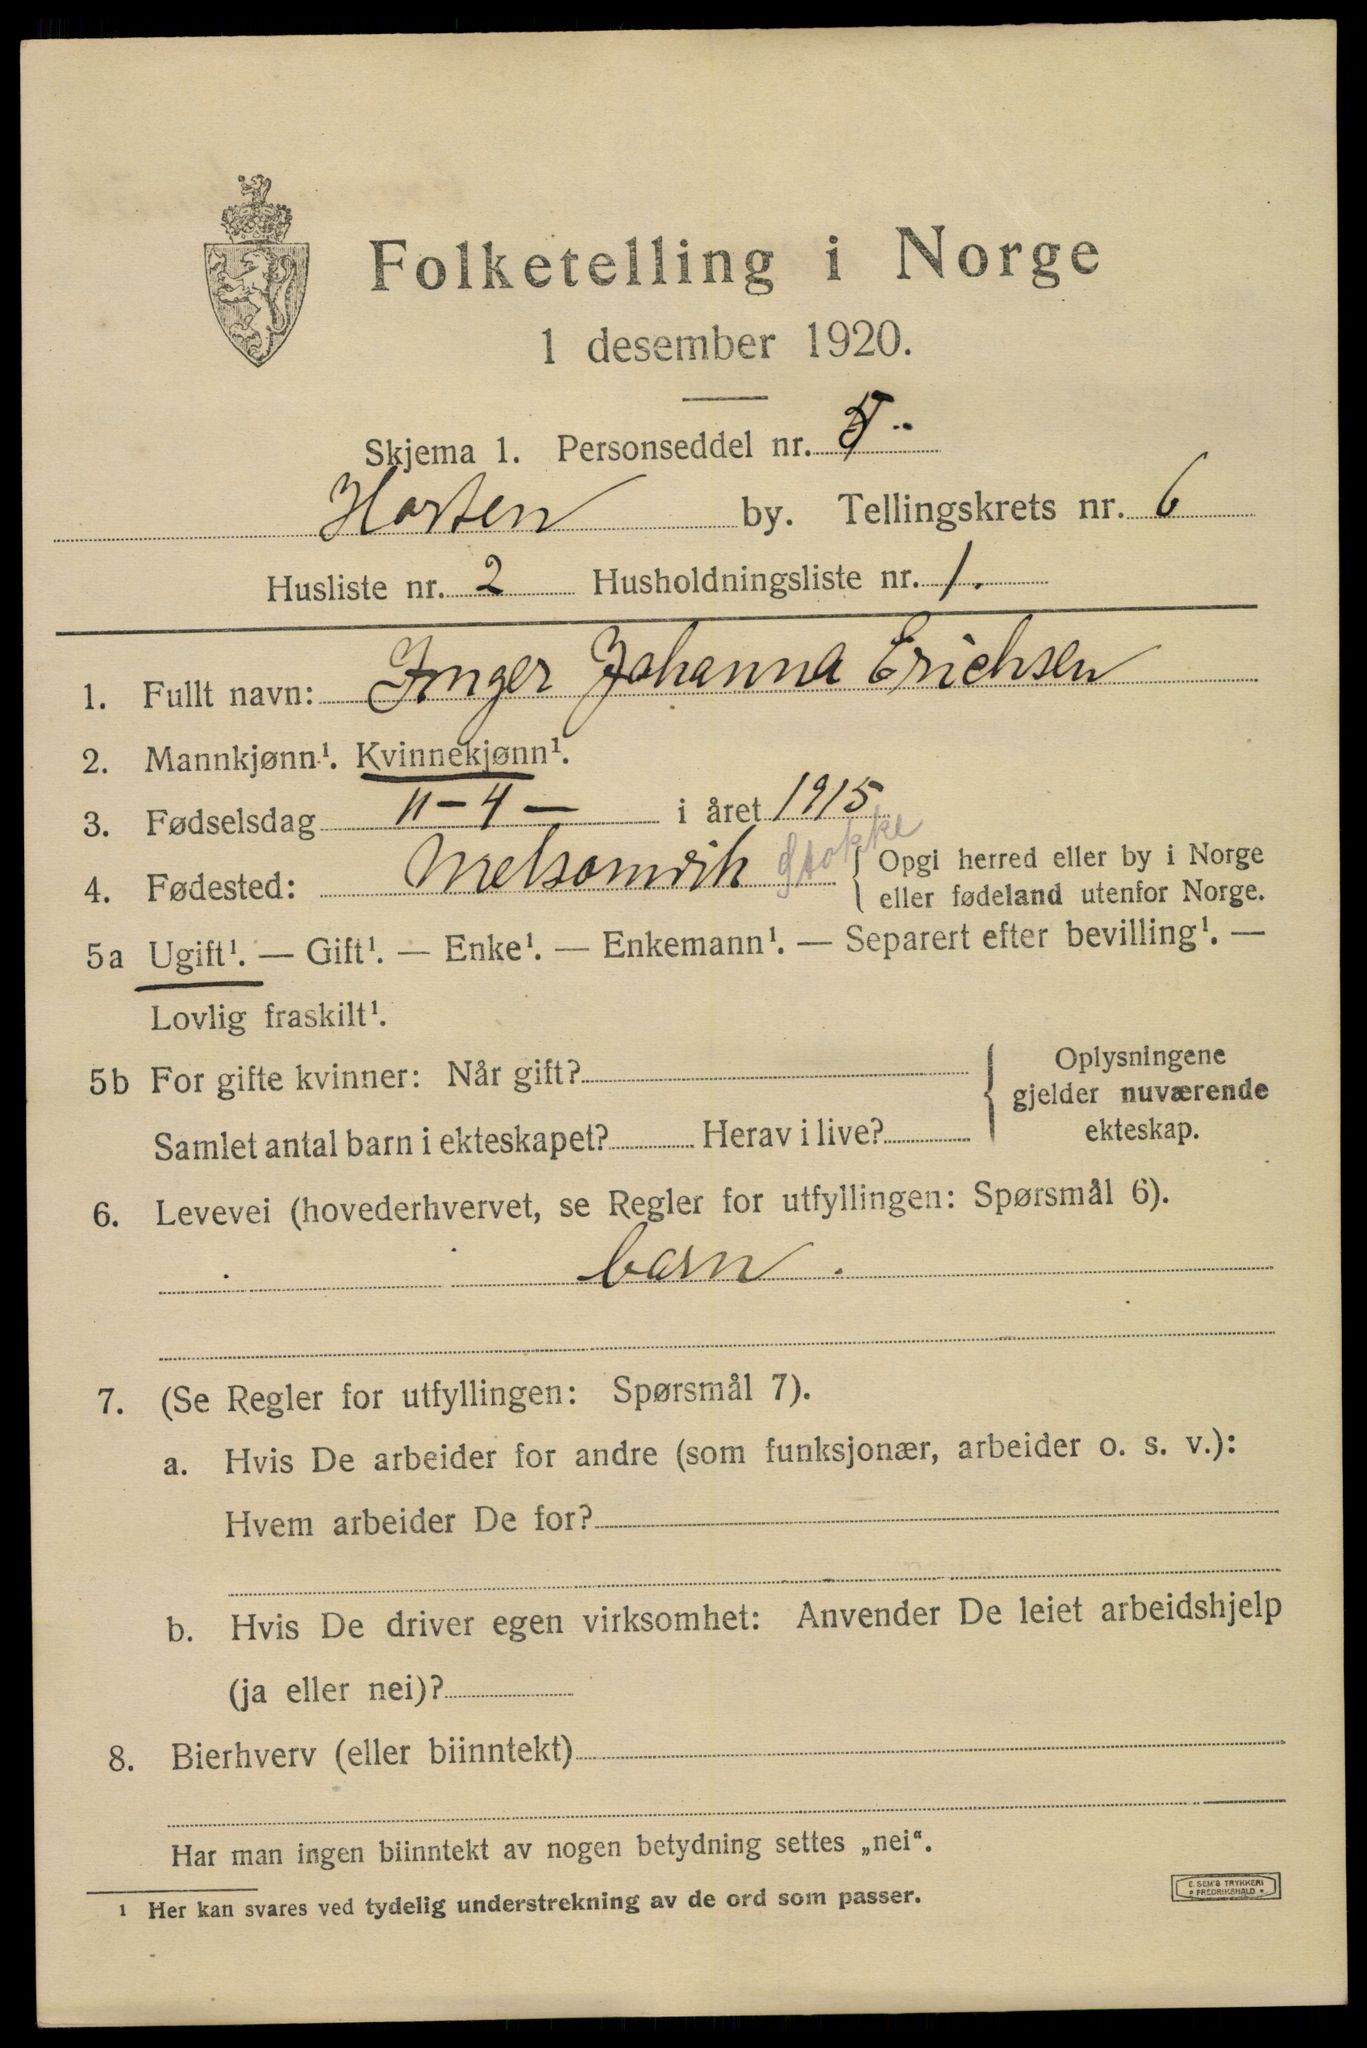 Folketelling i Norge
1 desember 1920.
Skjema 1. Personseddel nr.
Horten by. Tellingskrets nr. 6
Husliste nr. 2 Husholdningsliste nr. 1.
1. Fullt navn: Inger Johanna Erichsen
2. Mannkjønn¹. Kvinnekjønn¹.
3. Fødselsdag 11 - 4 - i året 1915
4. Fødested: Melsomvik Stokke { Opgi herred eller by i Norge
eller fødeland utenfor Norge.
5a Ugift¹. — Gift¹. — Enke¹. — Enkemann¹. — Separert efter bevilling¹. —
Lovlig fraskilt¹.
5b For gifte kvinner: Når gift?
Samlet antal barn i ekteskapet? Herav i live?
{ Oplysningene
gjelder nuværende
ekteskap.
6. Levevei (hovederhvervet, se Regler for utfyllingen: Spørsmål 6).
barn.
7. (Se Regler for utfyllingen: Spørsmål 7).
a. Hvis De arbeider for andre (som funksjonær, arbeider o. s. v.):
Hvem arbeider De for?
b. Hvis De driver egen virksomhet: Anvender De leiet arbeidshjelp
(ja eller nei)?
8. Bierhverv (eller biinntekt)
Har man ingen biinntekt av nogen betydning settes „nei“.
¹ Her kan svares ved tydelig understrekning av de ord som passer.
E. SEM'S TRYKKERI
FREDRIKSHALD